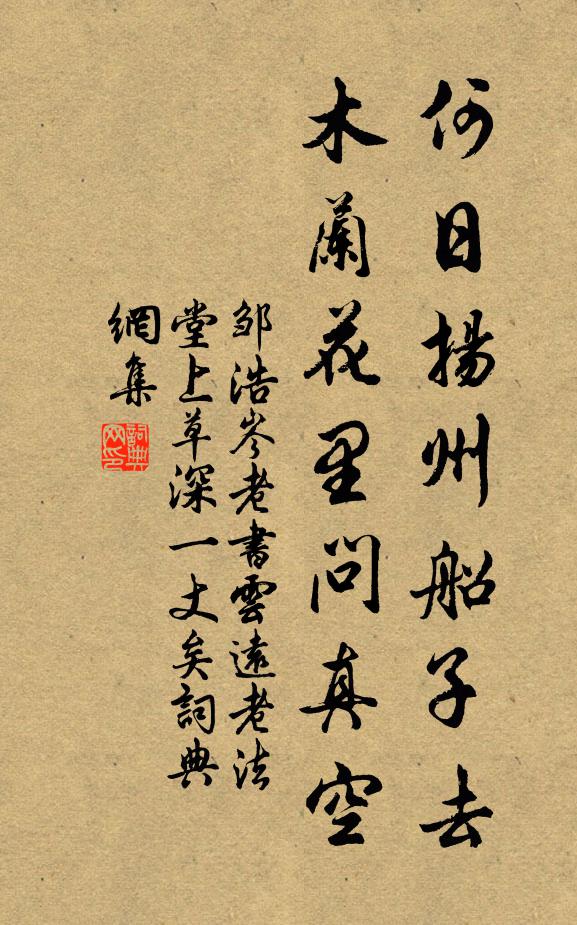 何日揚州船子去
木蘭花里問真空
邹浩岑老書雲遠老法
堂上草深一丈矣詞典
網集
詞典网印